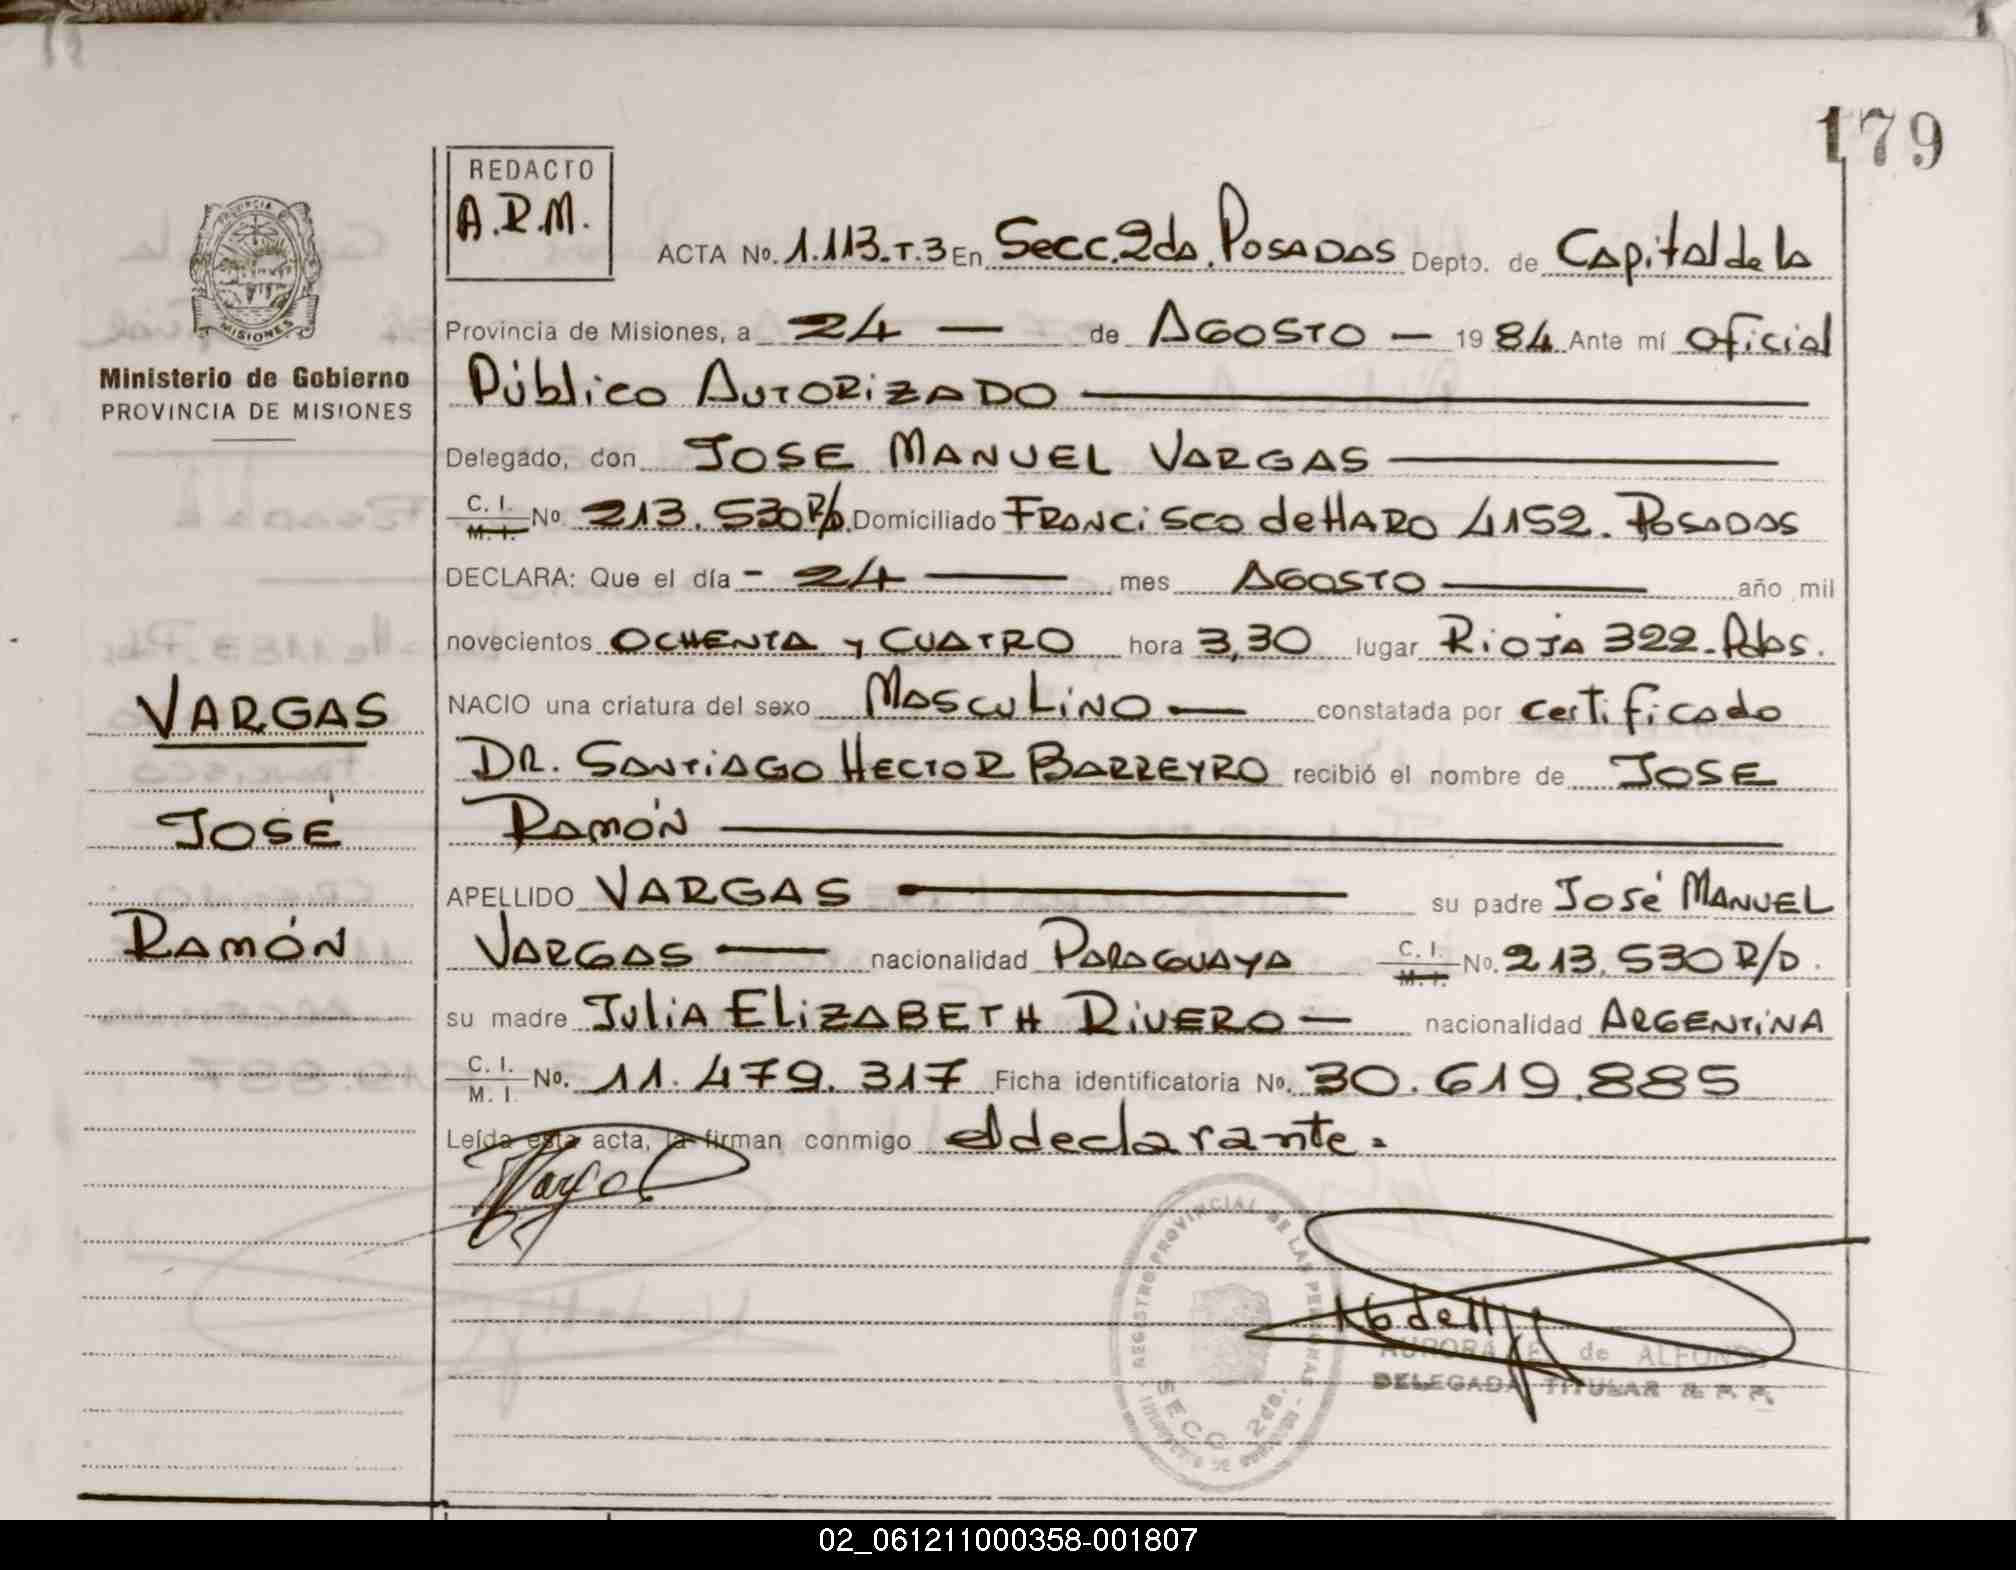 179
REDACTO
A.R.M.
ACTA No. 1.113.T.3 En Secc. 2da. POSADAS Depto. de Capital de la
Provincia de Misiones, a 24 — de AGOSTO — 1984 Ante mí Oficial
Público AUTORIZADO
Delegado, don JOSE MANUEL VARGAS
C. I. M. I. No 213.530 R/D. Domiciliado FRANCISCO de HARO 4152. POSADAS
DECLARA: Que el día - 24 — mes AGOSTO — año mil
novecientos OCHENTA y CUATRO hora 3,30 lugar RIOJA 322-Pdas.
NACIO una criatura del sexo MASCULINO — constatada por certificado
DR. SANTIAGO HECTOR BARREYRO recibió el nombre de JOSE
RAMÓN
APELLIDO VARGAS — su padre JOSÉ MANUEL
VARGAS — nacionalidad PARAGUAYA C. I. M. I. No. 213.530 R/D.
su madre JULIA ELIZABETH RIVERO — nacionalidad ARGENTINA
C. I. M. I. No. 11.479.317 Ficha identificatoria No. 30.619.885
Leída esta acta, la firman conmigo el declarante.
PROVINCIA
MISIONES
Ministerio de Gobierno
PROVINCIA DE MISIONES
VARGAS
JOSÉ
RAMÓN
REGISTRO PROVINCIAL DE LAS PERSONAS
SECC 2da.
AURORA E. de ALFONSO
DELEGADA TITULAR R. P. P.
02_061211000358-001807